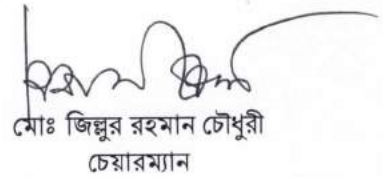 মোঃ জিল্লুর রহমান চৌধুরী
চেয়ারম্যান